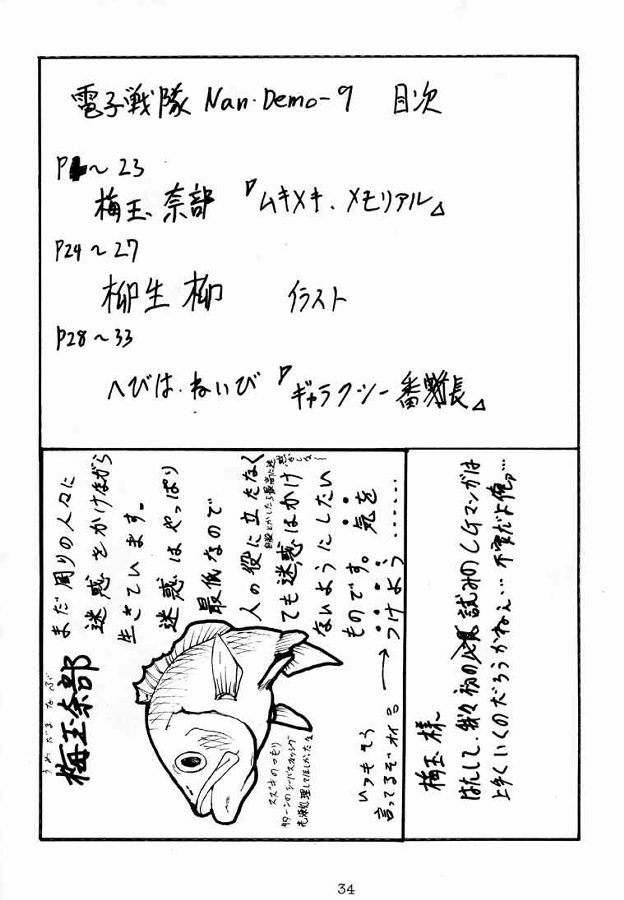 電子戦隊 Nan・Demo-9 目次
P4～23
梅玉奈部 『ムキメキ・メモリアル』
P24～27
柳生柳 イラスト
P28～33
へびは・ねいび 『ギャラクシー番野長』
まだ周りの人々に
迷惑をかけながら
生きています。
迷惑はやっぱり
最低なので
人の役に立たなく
ても迷惑はかけ
ないようにしたい
ものです。気を
つけよう……
いつもそう
言ってるぞオイ
うめだまなぶ
梅玉奈部
スズキのつもり
梅玉様
はたして、我々初の試みのCGマンガは
上手くいくのだろうかねぇ…不安だよ俺ァ…
34